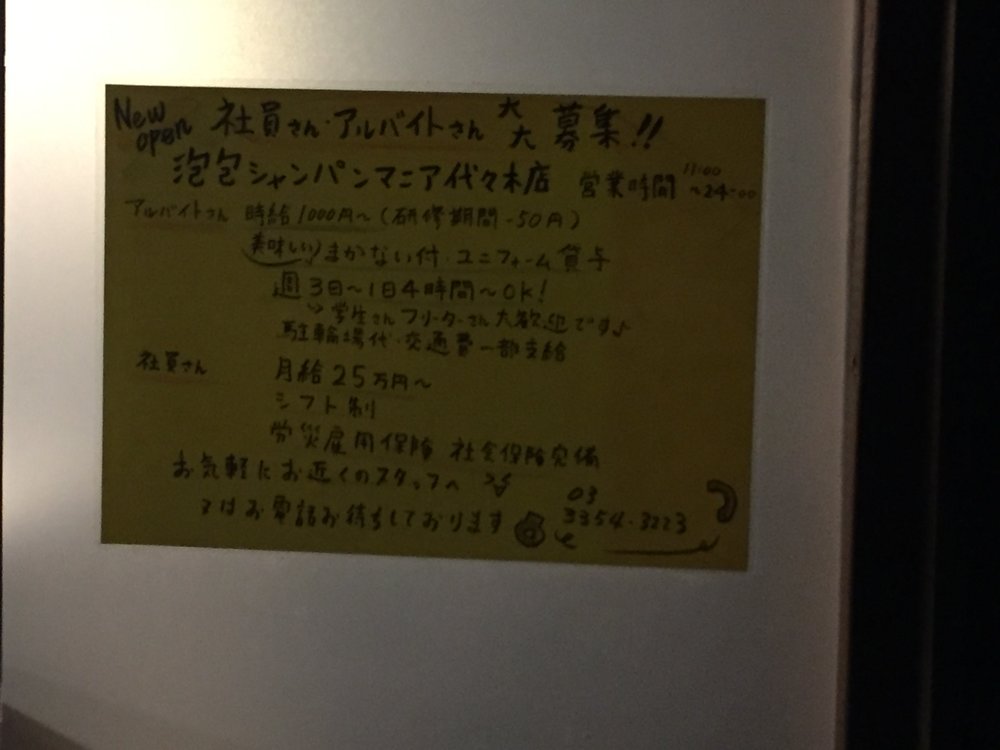 New open 社員さん・アルバイトさん 大大募集!!
泡包シャンパンマニア代々木店 営業時間 17:00～24:00
アルバイトさん 時給1000円～(研修期間-50円)
美味しいまかない付・ユニフォーム貸与
週3日～1日4時間～OK!
学生さんフリーターさん大歓迎です♪
駐輪場代・交通費一部支給
社員さん 月給25万円～
シフト制
労災雇用保険 社会保険完備
お気軽にお近くのスタッフへ
お電話お待ちしております 03
3354-3223